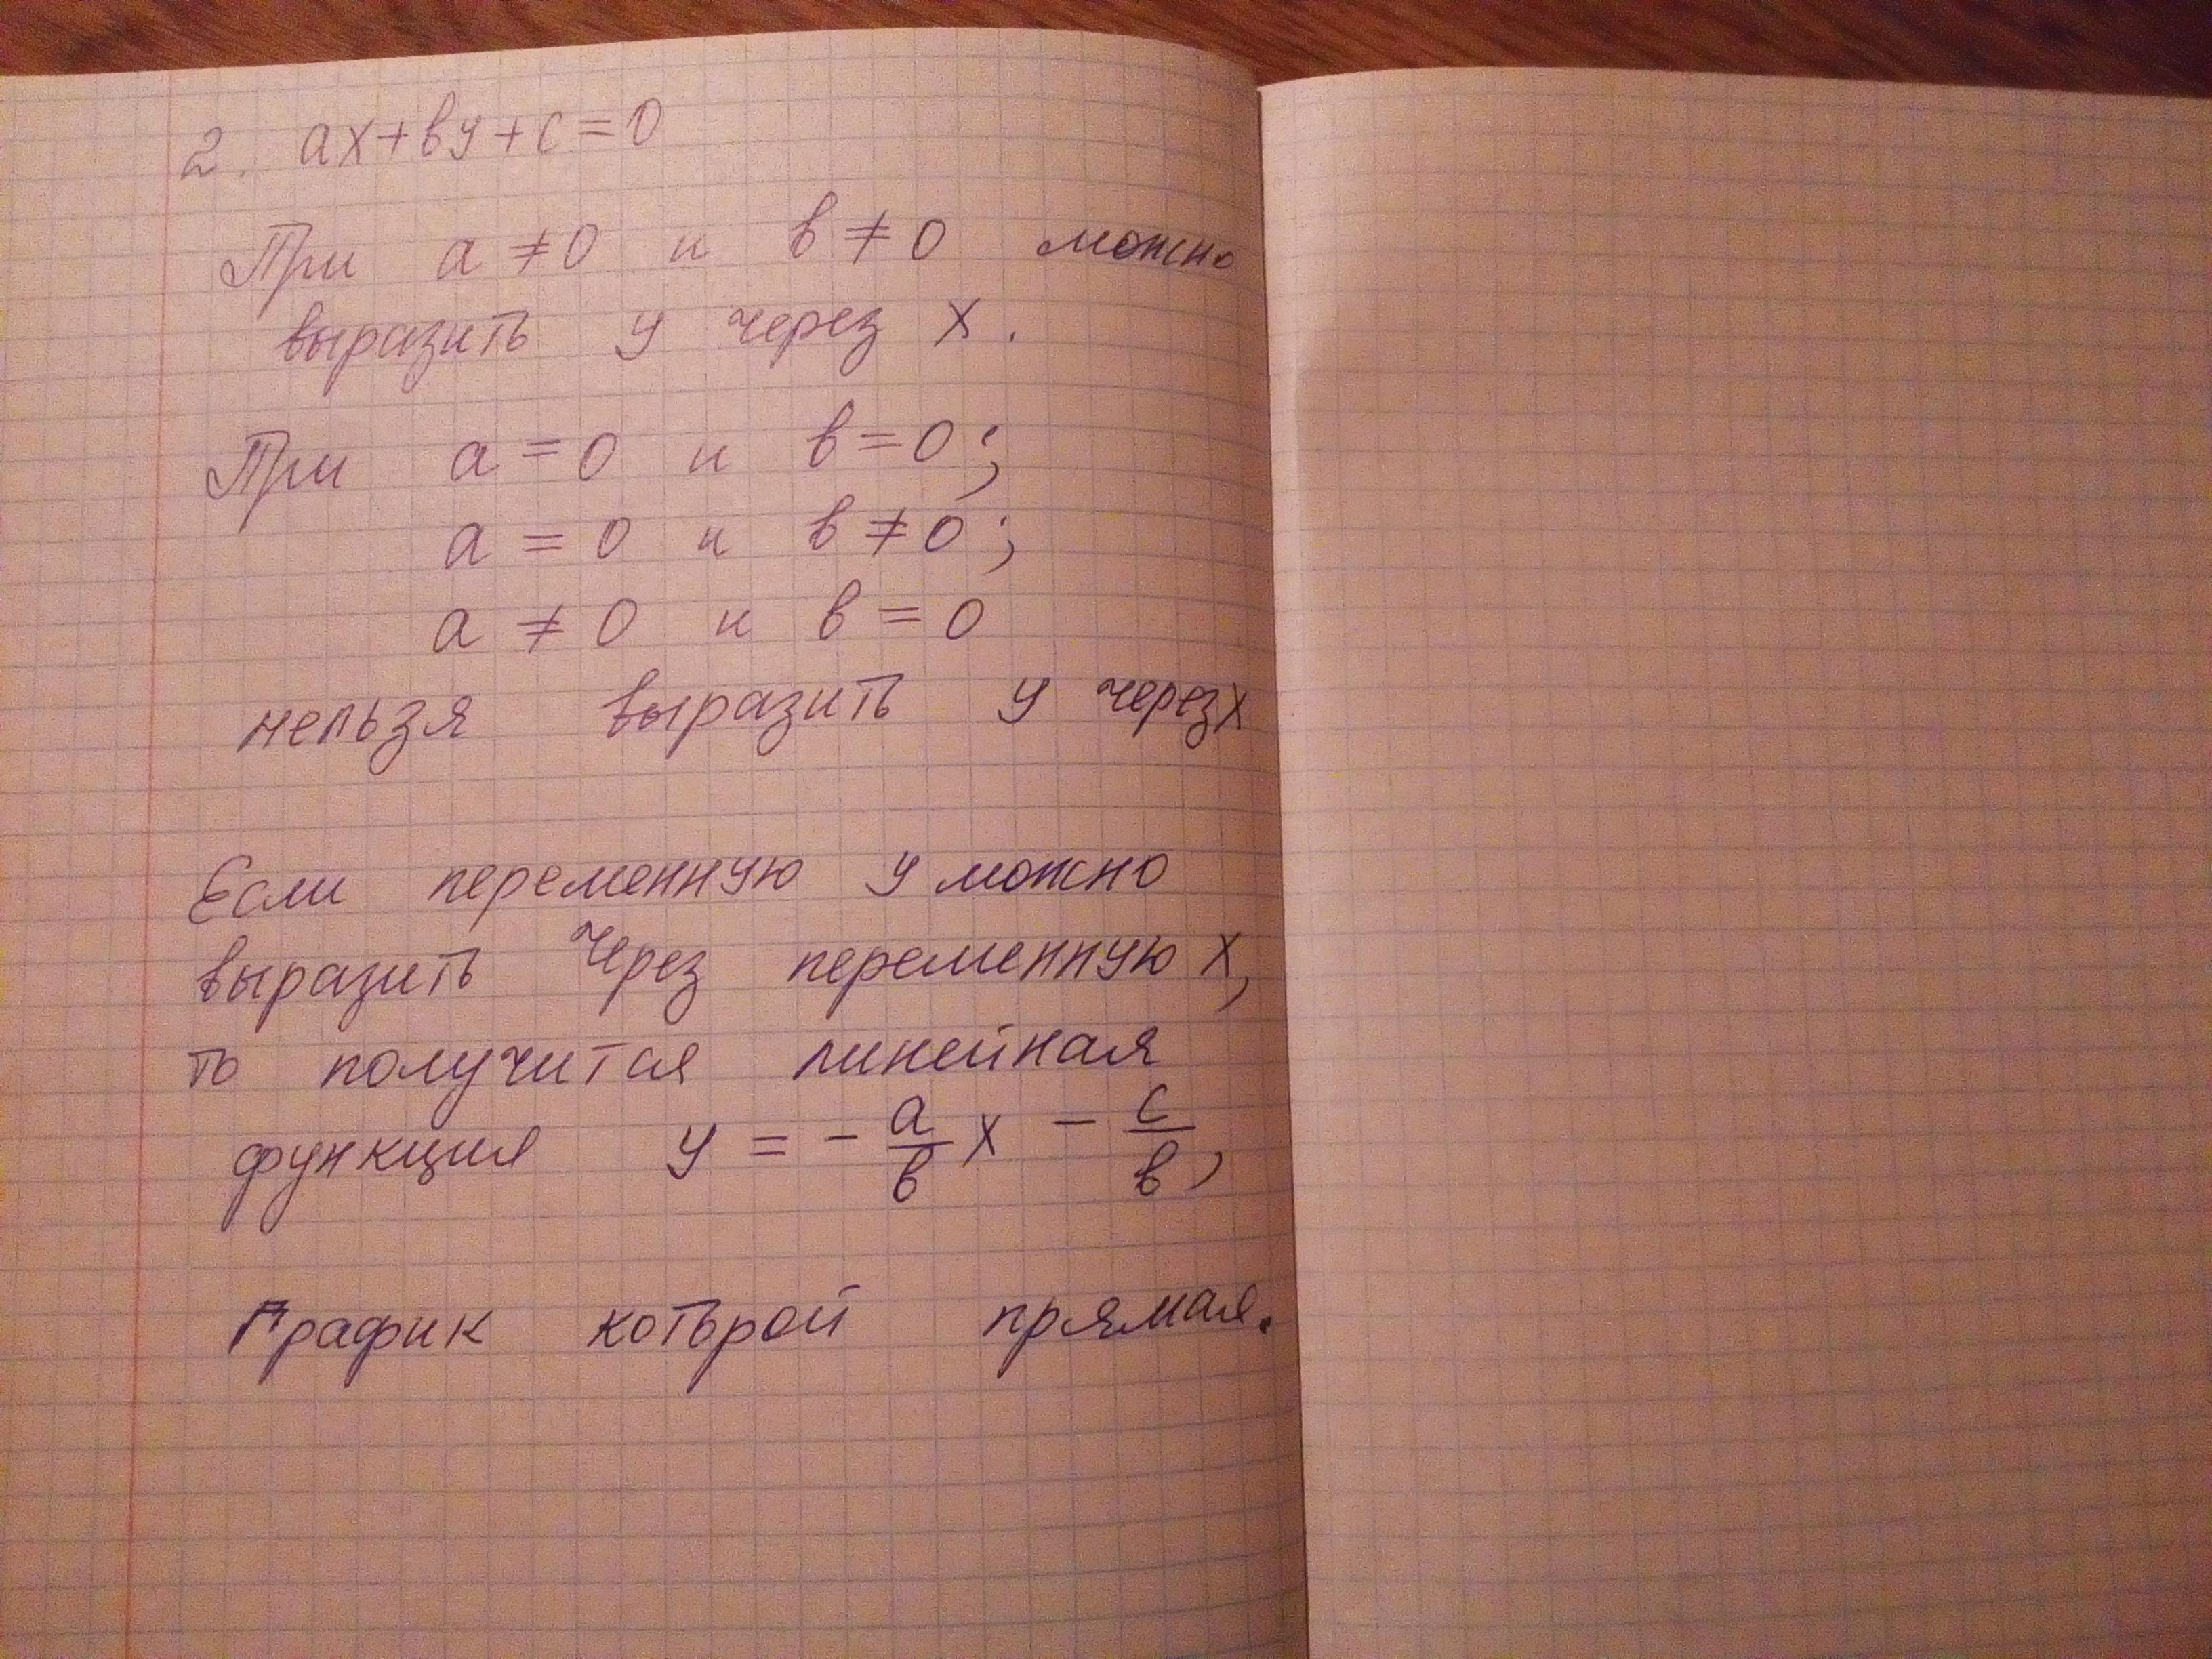 2. ax+by+c=0
При a≠0 и b≠0 можно
выразить y через x.
При a=0 и b=0;
a=0 и b≠0;
a≠0 и b=0
нельзя выразить y через x
Если переменную y можно
выразить через переменную x,
то получится линейная
функция y = - a/b x - c/b,
График котьрой прямая.